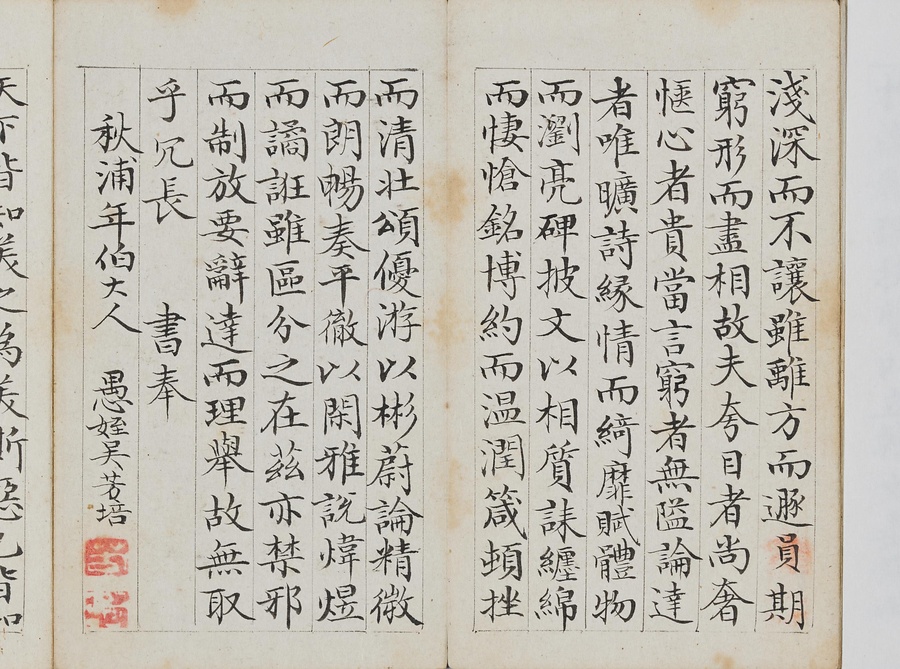 淺深而不讓雖離方而遯員期
窮形而盡相故夫夸目者尚奢
愜心者貴當言窮者無隘論達
者唯曠詩緣情而綺靡賦體物
而瀏亮碑披文以相質誄纏綿
而悽愴銘博約而温潤箴頓挫
而清壯頌優游以彬蔚論精微
而朗暢奏平徹以閑雅說煒煜
而譎誑雖區分之在茲亦禁邪
而制放要辭達而理舉故無取
乎冗長 書奉
秋浦年伯大人 愚姪吳芳培
天下皆知美之為美斯惡已皆知